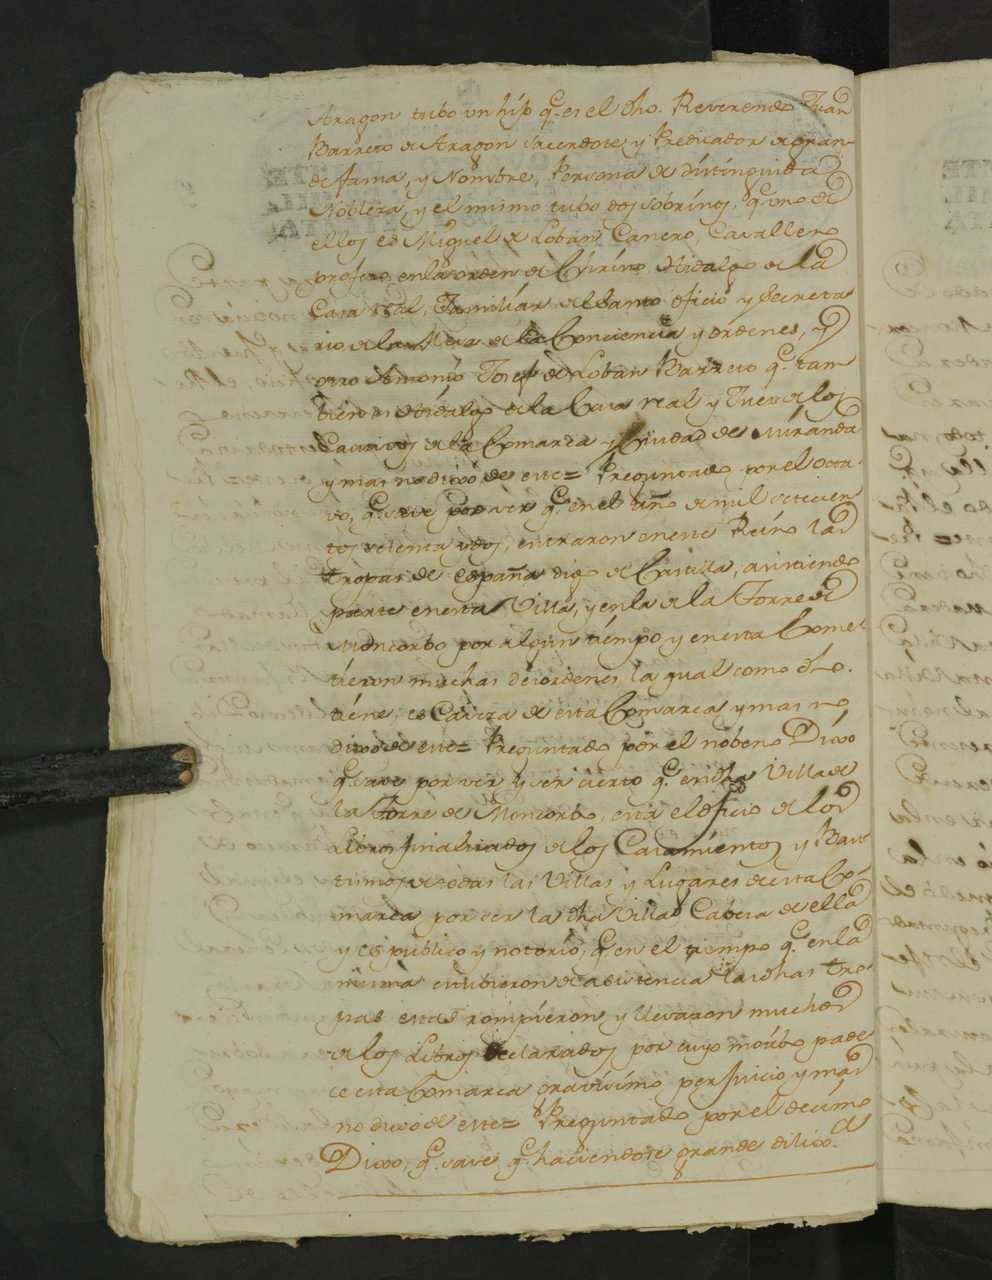 Aragon tubo un hijo q.e es el dho. Reverendo Juan
Barreto de Aragon sacerdote y Predicador de gran-
de fama, y Nombre, Persona de distinguida
Nobleza, y el mismo tubo dos sobrinos, q.e uno de
ellos es Miguel de Loban Canero, Cavallero
profeso en la orden de Christo Hidalgo de la
Casa real, Familiar del Santo oficio y Secreta
rio de la Mesa de la Conciencia y ordenes, y
otro Antonio Josef de Loban Barreto q.e tam
bien es Hidalgo de la Casa real y Juez de los
Cautivos de la Comarca y Ciudad de Miranda
y mas no dixo de este= Preguntado por el octa
vo, q.e save por ver q.e en el año de mil setecien
tos sesenta y dos, entraron en este Reino las
tropas de España digo de Castilla, asistiendo
parte en esta Villa, y en la de la Torre de
Moncorbo por algun tiempo y en esta Come-
tieron muchas desordenes la qual como dho.
tiene, es Caveza de esta Comarca y mas no
dixo de este= Preguntado por el nobeno Dixo
q.e save por ver y ser cierto q.e en dha Villa de
la Torre de Moncorbo, esta el oficio de los
Libros finalizados de los Casamientos y Bau
tismos de todas las Villas y Lugares de esta Co-
marca por ser la dha Villa Cabeza de ella
y es publico y notorio, q.e en el tiempo q.e en la
misma estubieron de asistencia las dhas tro-
pas estas rompieron y llevaron muchos
de los Libros declarados por cuyo motibo pade
ce esta Comarca gravisimo perjuicio y mas
no dixo de este= Preguntado por el decimo
Dixo, q.e save q.e haciendose grande dilix.a